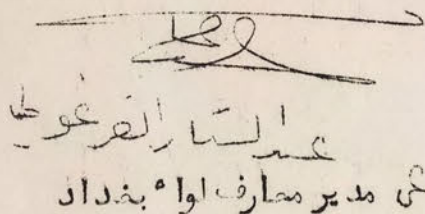 عبد الستار القرغولي
عن مدير معارف لواء بغداد